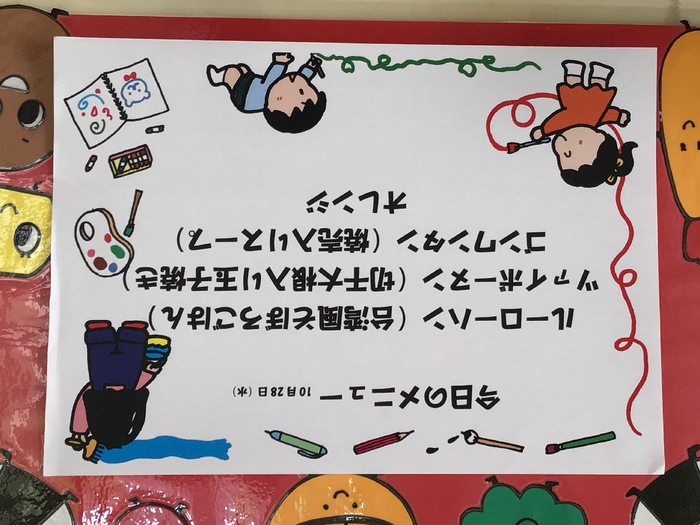 今日のメニュー 10月28日(水)
ルーローハン（台湾風そぼろごはん）
ツァイボーヌン（切干大根入り玉子焼き）
ゴンワンタン（焼売入りスープ）
オレンジ